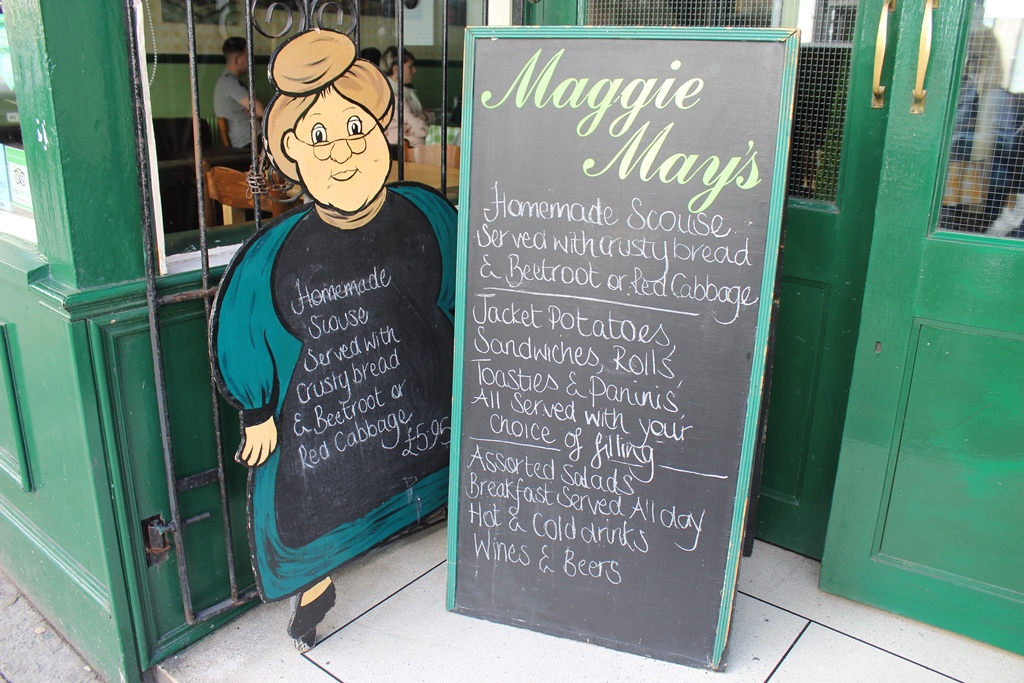 Homemade
Scouse
Served with
crusty bread
& Beetroot or
Red Cabbage
£5.95
Maggie
May's
Homemade Scouse
Served with crusty bread
& Beetroot or Red Cabbage
Jacket Potatoes,
Sandwiches, Rolls,
Toasties & Paninis,
All Served with your
choice of filling
Assorted Salads
Breakfast Served All day
Hot & Cold drinks
Wines & Beers